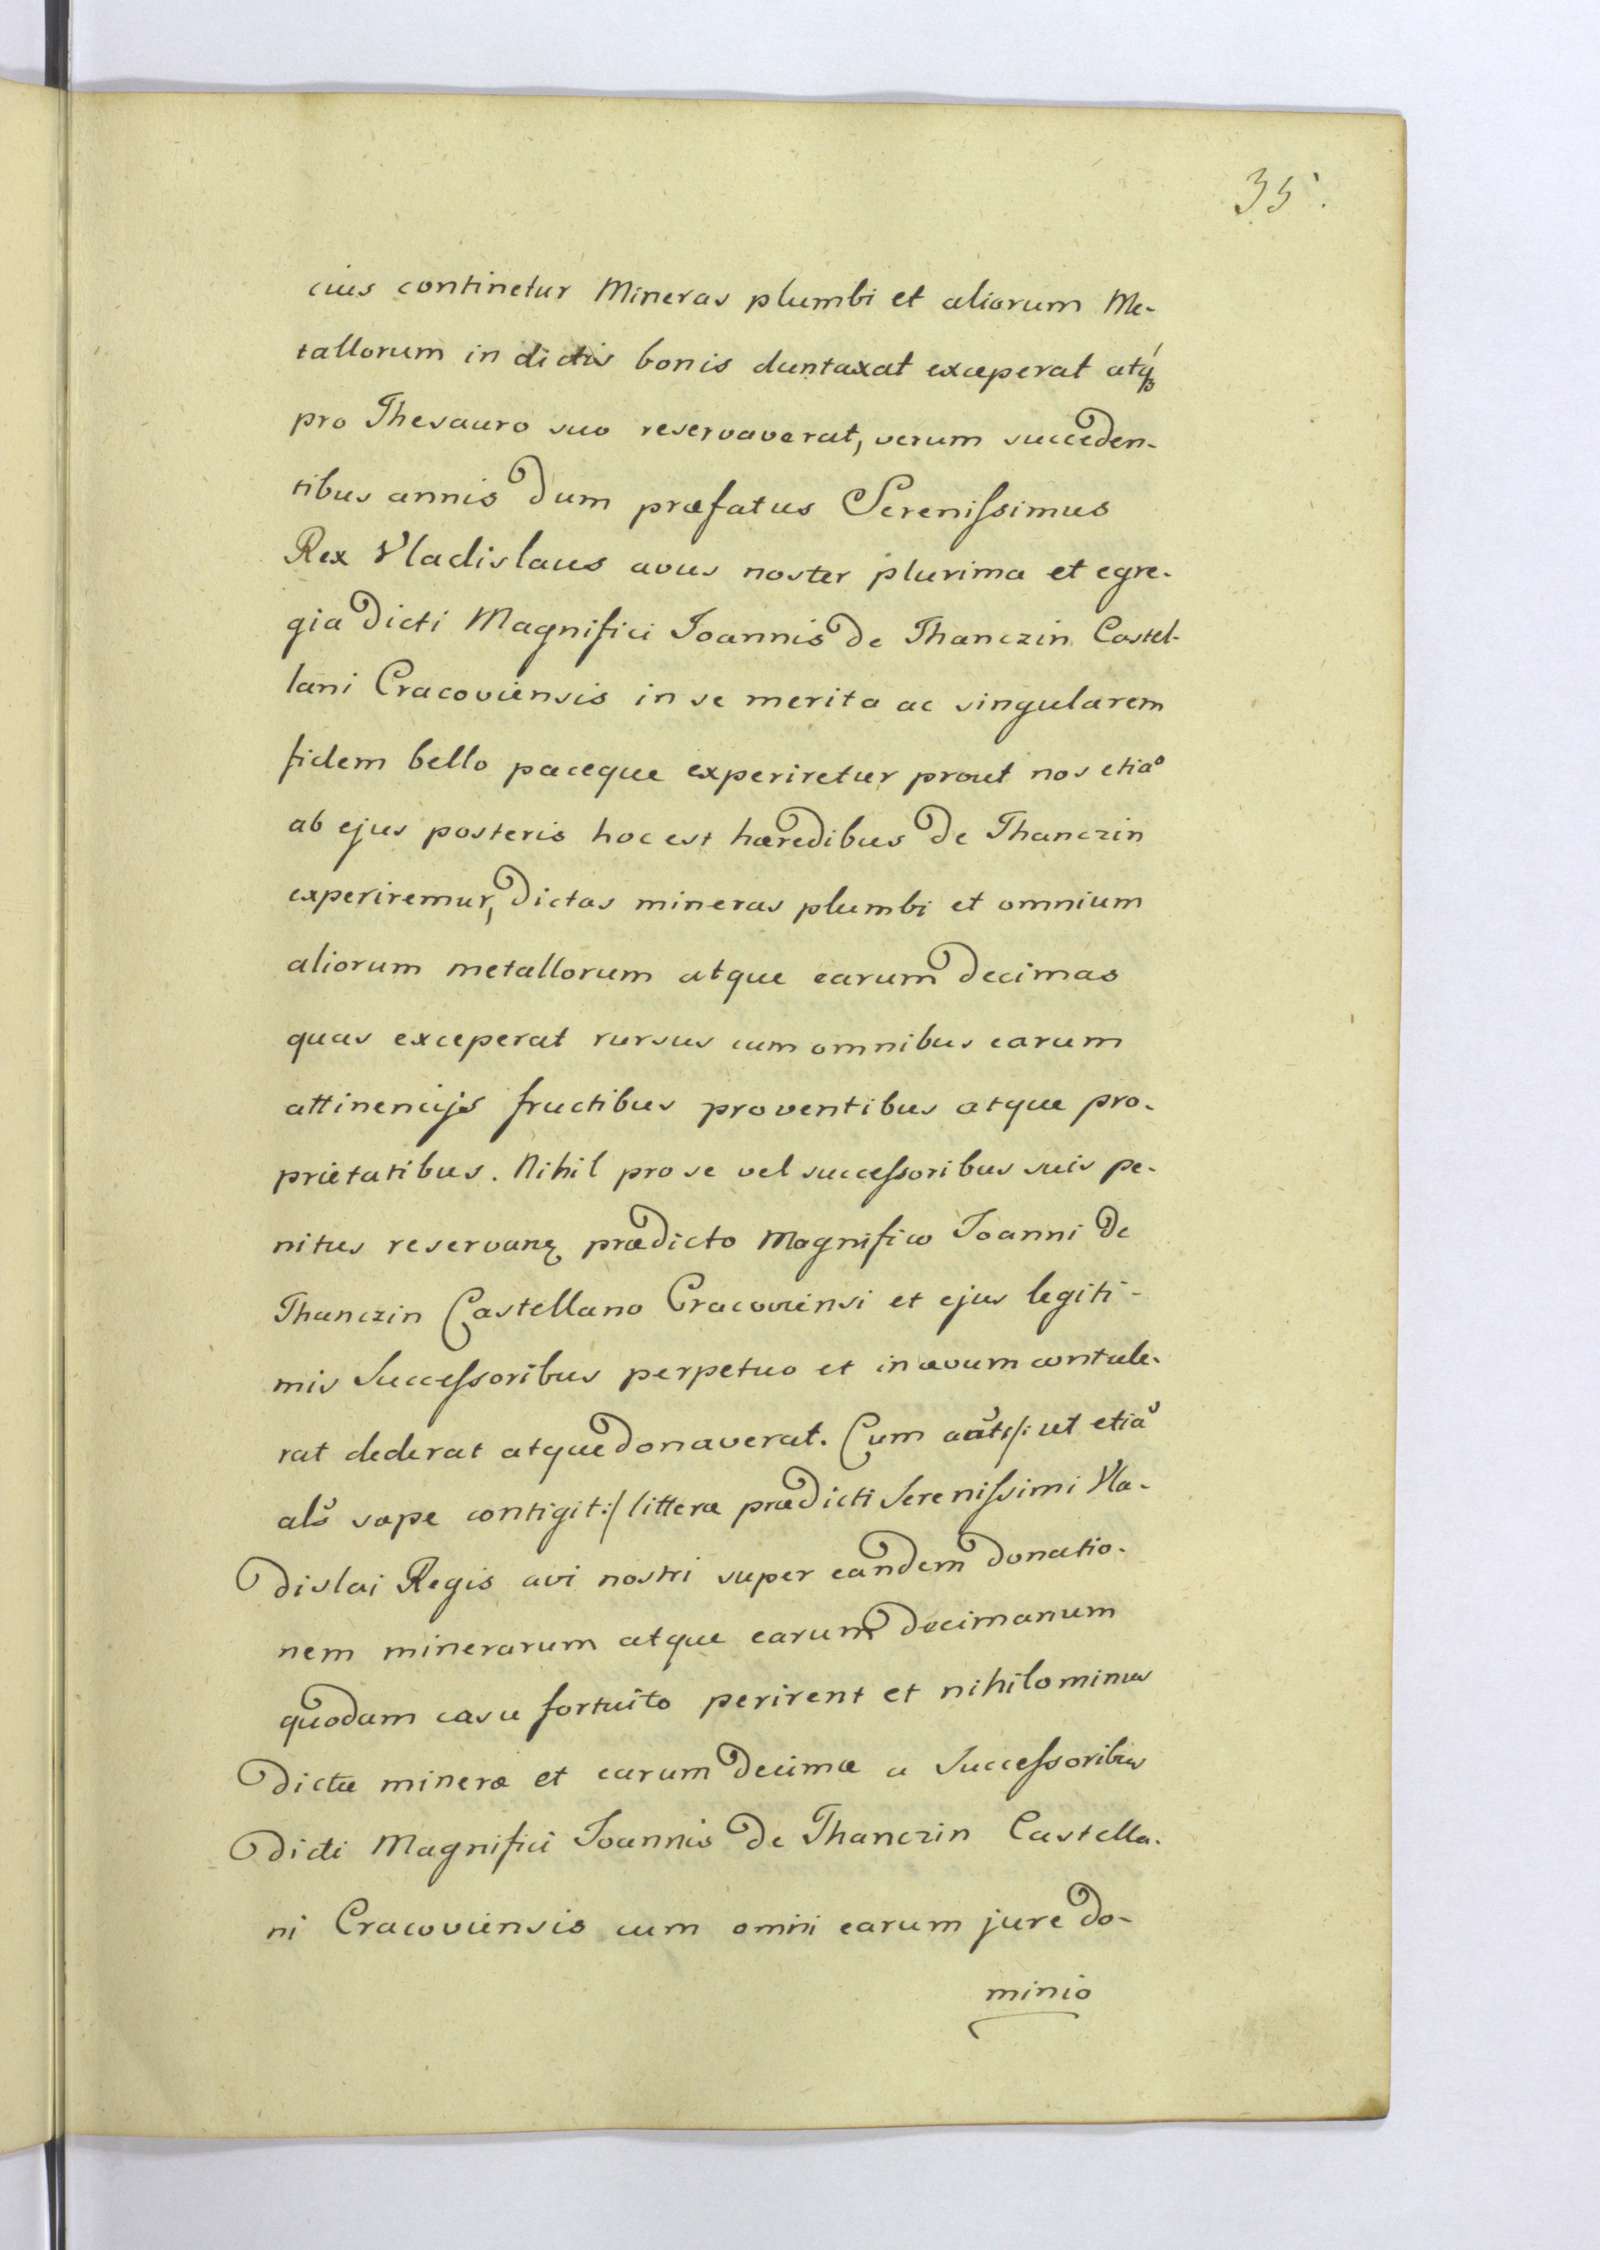 35.
cuius continetur Mineras plumbi et aliorum Me-
tallorum in dictis bonis duntaxat exceperat atq́ꝫ
pro Thesauro suo reservaverat, verum succeden-
tibus annis dum præfatus Serenissimus
Rex Vladislaus avus noster plurima et egre-
gia dicti Magnifici Joannis de Thanczin Castel-
lani Cracoviensis in se merita ac singularem
fidem bello paceque experiretur prout nos etiã
ab ejus posteris hoc est hæredibus de Thanczin
experiremur, dictas mineras plumbi et omnium
aliorum metallorum atque earum decimas
quas exceperat rursus cum omnibus earum
attinencijs fructibus proventibus atque pro-
prietatibus. Nihil pro se vel successoribus suis pe-
nitus reservanꝫ prædicto Magnifico Joanni de
Thanczin Castellano Cracoviensi et ejus legiti-
mis Successoribus perpetuo et in ævum contule-
rat dederat atque donaverat. Cum aũt /: ut etiã
als̃ sæpe contigit :/ litteræ prædicti Serenissimi Vla-
dislai Regis avi nostri super eandem donatio-
nem minerarum atque earum decimanum
quodam casu fortuito perirent et nihilominus
dictæ mineræ et earum decimæ a Successoribus
dicti Magnifici Joannis de Thanczin Castella-
ni Cracoviensis cum omni earum jure do-
minio